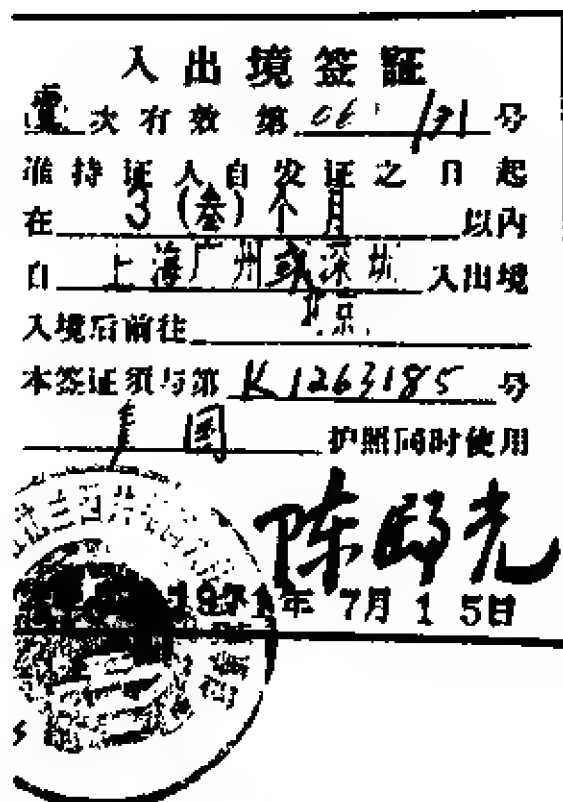 入出境签証
次有效 第 06 号
准持证人自发证之日起
在 3 (叁) 个月 以内
自 上海广州或深圳 入出境
入境后前往 北京
本签证须与第 K1263185 号
国 护照同时使用
陈
1971年 7月 1 5日